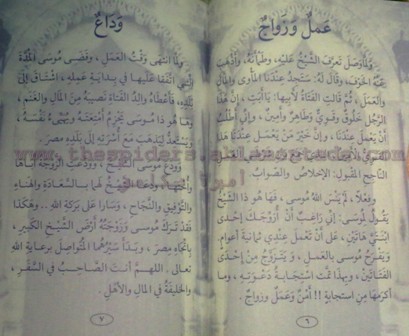 عَمَلٌ وَزَوَاجٌ
وَلَمَّا وَصَلَ تَعَرَّفَ الشَّيْخُ عَلَيْهِ، وَطَمْأَنَهُ، وَأَذْهَبَ
عَنْهُ الْخَوْفَ، وَقَالَ لَهُ: سَتَجِدُ عِنْدَنَا الْمَأْوَى وَالْمَالَ
وَالْعَمَلَ، ثُمَّ قَالَتِ الْفَتَاةُ لِأَبِيهَا: يَا أَبَتِ، إِنَّ هَذَا
الرَّجُلَ خَلُوقٌ وَقَوِيٌّ وَطَاهِرٌ وَأَمِينٌ، وَإِنِّي أَطْلُبُ
أَنْ يَعْمَلَ عِنْدَنَا، وَإِنَّ خَيْرَ مَنْ يَعْمَلُ عِنْدَنَا هَذَا
الْعَمَلِ
النَّاجِحِ الْمَقْبُولِ: الْإِخْلَاصُ وَالصَّوَابُ.
وَفِعْلًا، لَمْ يَنْسَ اللهُ مُوسَى، فَهَا هُوَ ذَا الشَّيْخُ
يَقُولُ لِمُوسَى: إِنِّي رَاغِبٌ أَنْ أُزَوِّجَكَ إِحْدَى
ابْنَتَيَّ هَاتَيْنِ، عَلَى أَنْ تَعْمَلَ عِنْدِي ثَمَانِيَةَ أَعْوَامٍ.
وَيَفْرَحُ مُوسَى بِالْعَمَلِ، وَيَتَزَوَّجُ مِنْ إِحْدَى
الْفَتَاتَيْنِ، وَبِهَذَا تَمَّتِ اسْتِجَابَةُ دَعْوَتِهِ، وَمَا
أَكْرَمَهَا مِنِ اسْتِجَابَةٍ!! أَمْنٌ وَعَمَلٌ وَزَوَاجٌ.
٦
وَدَاعٌ
وَلَمَّا انْتَهَى وَقْتُ الْعَمَلِ، وَقَضَى مُوسَى الْمُدَّةَ
الَّتِي اتَّفَقَا عَلَيْهَا فِي بِدَايَةِ عَمَلِهِ، اشْتَاقَ إِلَى
بَلَدِهِ، فَأَعْطَاهُ وَالِدُ الْفَتَاةِ نَصِيبَهُ مِنَ الْمَالِ وَالْغَنَمِ،
وَهَا هُوَ ذَا مُوسَى يَحْزِمُ أَمْتِعَتَهُ وَيُهَيِّئُ نَفْسَهُ،
وَيَسْتَعِدُّ لِيَذْهَبَ مَعَ أُسْرَتِهِ إِلَى بَلَدِهِ مِصْرَ.
وَوَدَّعَ مُوسَى الشَّيْخَ، وَوَدَّعَتِ الزَّوْجَةُ أَبَاهَا
وَأُخْتَهَا، لَهُمَا بِالسَّعَادَةِ وَالْهَنَاءِ
وَالتَّوْفِيقِ وَالنَّجَاحِ، وَسَارَا عَلَى بَرَكَةِ اللهِ.. وَهَكَذَا
فَقَدْ تَرَكَ مُوسَى وَزَوْجَتُهُ أَرْضَ الشَّيْخِ الْكَبِيرِ،
بِاتِّجَاهِ مِصْرَ، وَبَدَأَ سَيْرُهُمَا الْمُتَوَاصِلُ بِرِعَايَةِ اللهِ
تَعَالَى. اللَّهُمَّ أَنْتَ الصَّاحِبُ فِي السَّفَرِ،
وَالْخَلِيفَةُ فِي الْمَالِ وَالْأَهْلِ.
٧